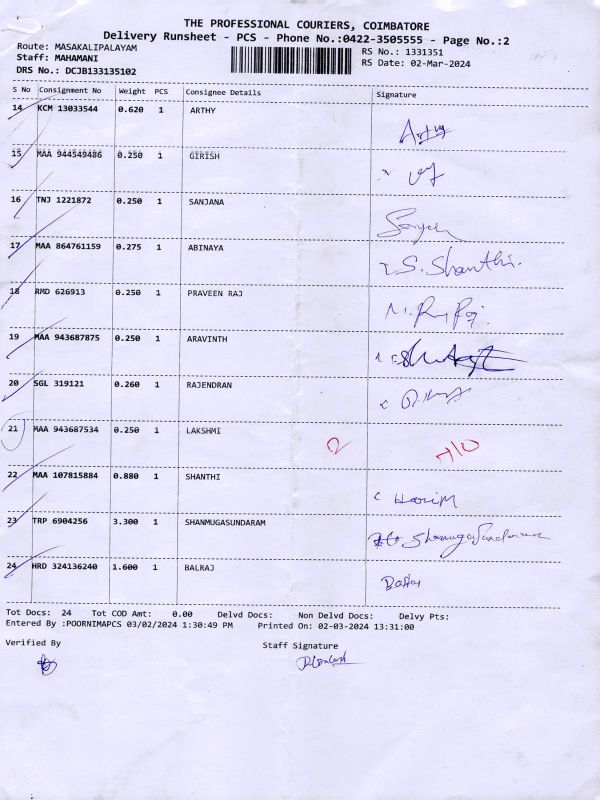 THE PROFESSIONAL COURIERS, COIMBATORE
Delivery Runsheet - PCS - Phone No.:0422-3505555 - Page No.:2
Route: MASAKALIPALAYAM
Staff: MAHAMANI
DRS No.: DCJB133135102
RS No.: 1331351
RS Date: 02-Mar-2024
S No Consignment No Weight PCS Consignee Details Signature
14 KCM 13033544 0.620 1 ARTHY Arthy
15 MAA 944549486 0.250 1 GIRISH
16 TNJ 1221872 0.250 1 SANJANA
17 MAA 864761159 0.275 1 ABINAYA S. Shanthi.
18 RMD 626913 0.250 1 PRAVEEN RAJ
19 MAA 943687875 0.250 1 ARAVINTH
20 SGL 319121 0.260 1 RAJENDRAN
21 MAA 943687534 0.250 1 LAKSHMI
22 MAA 107815884 0.880 1 SHANTHI
23 TRP 6904256 3.300 1 SHANMUGASUNDARAM
24 HRD 324136240 1.600 1 BALRAJ
Tot Docs: 24 Tot COD Amt: 0.00 Delvd Docs: Non Delvd Docs: Delvy Pts:
Entered By :POORNIMAPCS 03/02/2024 1:30:49 PM Printed On: 02-03-2024 13:31:00
Verified By
Staff Signature